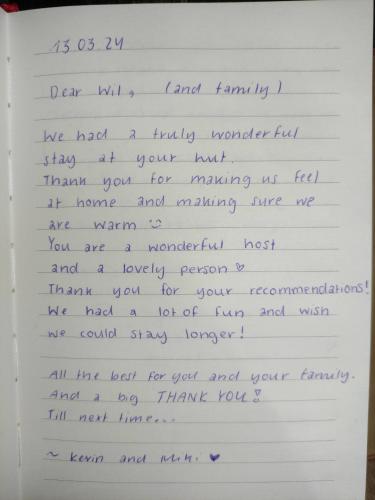 13.03.24
Dear Wil, (and family)
We had a truly wonderful
stay at your hut.
Thank you for making us feel
at home and making sure we
are warm ☺
You are a wonderful host
and a lovely person ♡
Thank you for your recommendations!
We had a lot of fun and wish
we could stay longer!
All the best for you and your family.
And a big THANK YOU!
Till next time...
~ Kevin and Miki ♥